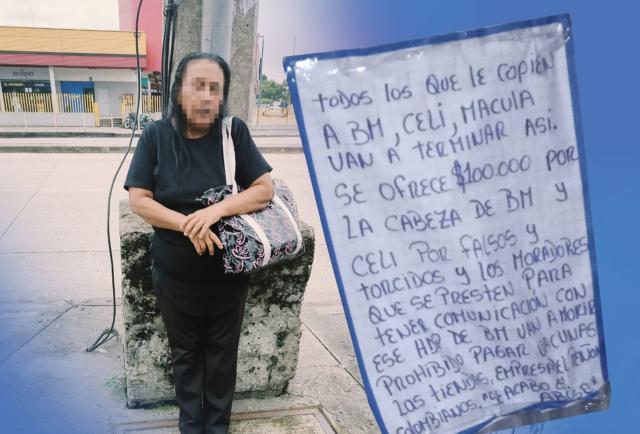 TODOS LOS QUE LE COPIEN
A BM, CELI, MACUIA
VAN A TERMINAR ASI.
SE OFRECE $100.000 POR
LA CABEZA DE BM Y
CELI POR FALSOS Y
TORCIDOS Y LOS MORADORES
QUE SE PRESTEN PARA
TENER COMUNICACION CON
ESE HDP DE BM VAN A MORIR
PROHIBIDO PAGAR VACUNAS
LAS TIENDAS, EMPRESA EL PEÑON
COLOMBIANOS
ACABO